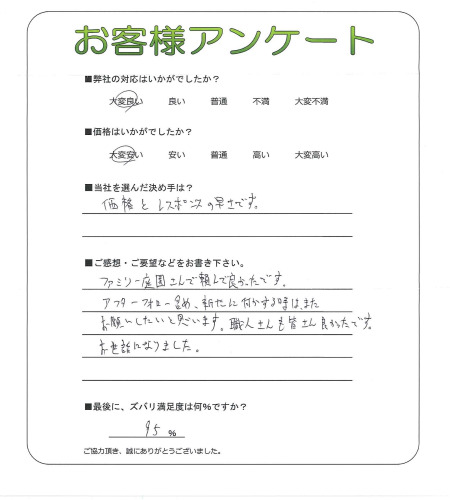 お客様アンケート
■弊社の対応はいかがでしたか?
大変良い 良い 普通 不満 大変不満
■価格はいかがでしたか?
大変安い 安い 普通 高い 大変高い
■当社を選んだ決め手は?
価格とレスポンスの早さです。
■ご感想・ご要望などをお書き下さい。
ファミリー庭園さんで頼んで良かったです。
アフターフォロー含め、新たに何かする時は、また
お願いしたいと思います。職人さんも皆さん良かったです。
お世話になりました。
■最後に、ズバリ満足度は何%ですか?
95 %
ご協力頂き、誠にありがとうございました。